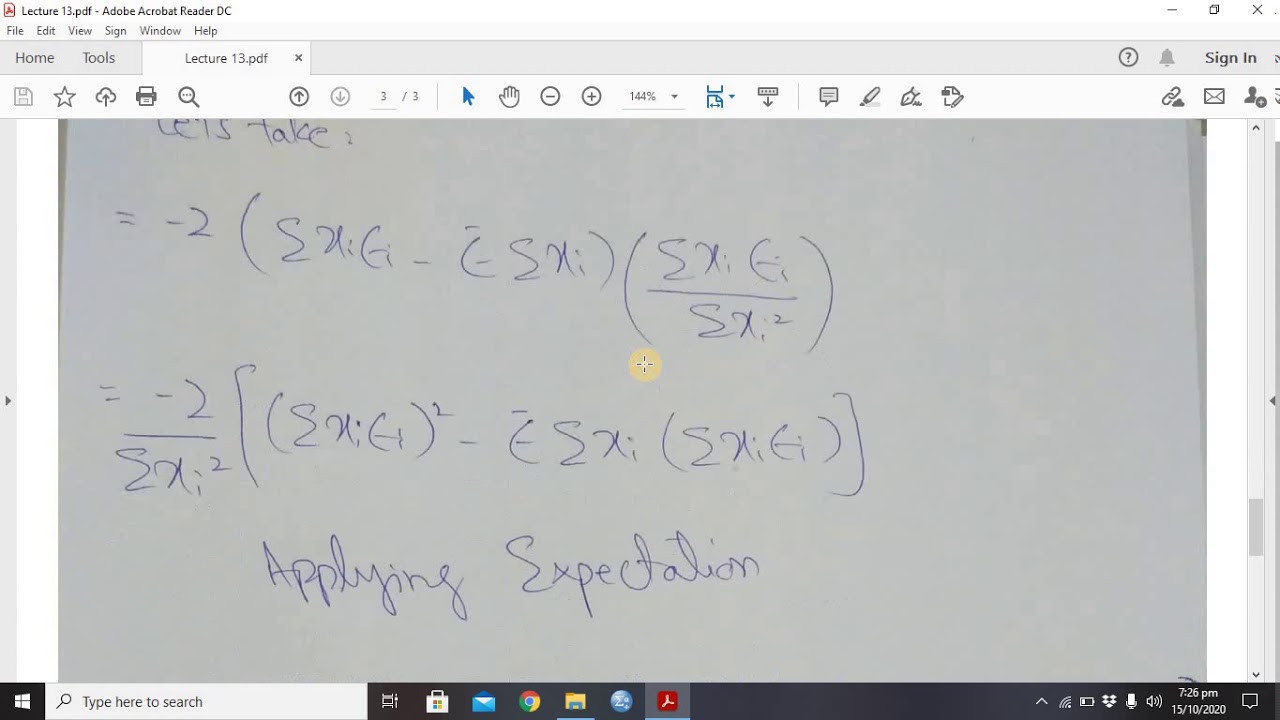 Lecture 13.pdf - Adobe Acrobat Reader DC
File Edit View Sign Window Help
Home Tools Lecture 13.pdf × Sign In
3 / 3 144%
Let's take:
= -2 (Σxᵢϵᵢ - ϵ̄ Σxᵢ) (Σxᵢ ϵᵢ / Σxᵢ²)
= -2 / Σxᵢ² [(Σxᵢϵᵢ)² - ϵ̄ Σxᵢ (Σxᵢϵᵢ)]
Applying Expectation
Type here to search
7:26 pm
15/10/2020